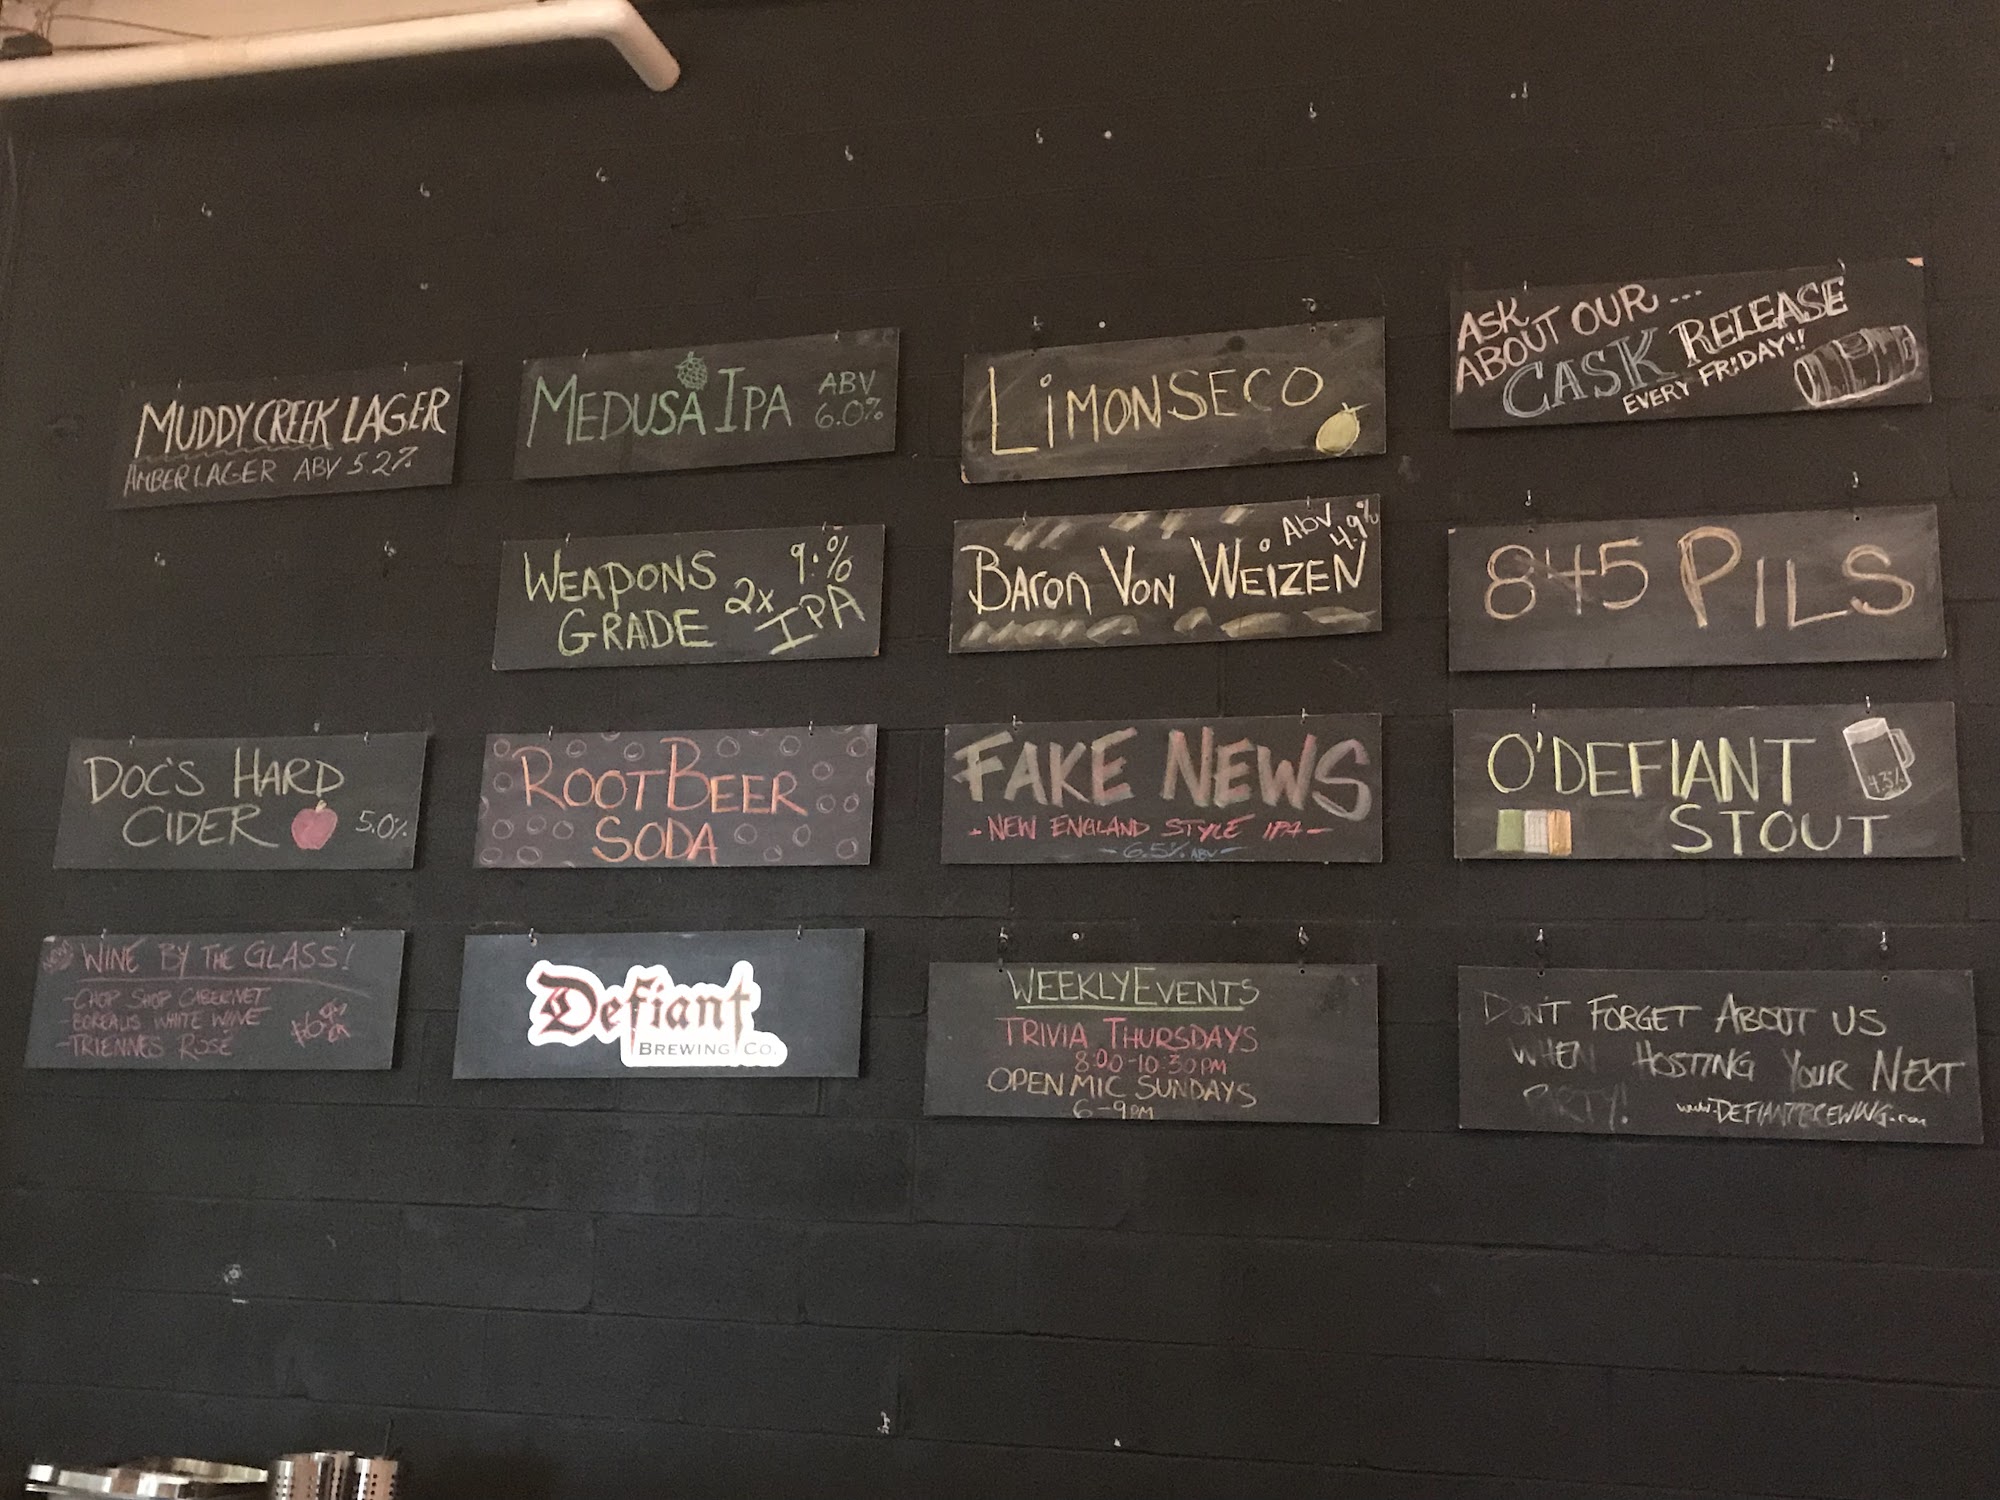 MUDDY CREEK LAGER
AMBER LAGER ABV 5.2%
MEDUSA IPA
ABV
6.0%
LIMONSECO
ASK
ABOUT OUR...
CASK RELEASE
EVERY FRIDAY!!
WEAPONS
GRADE
2x
IPA
BARON VON WEIZEN
ABV
4.9%
845 PILS
DOC'S HARD
CIDER
5.0%
ROOT BEER
SODA
FAKE NEWS
- NEW ENGLAND STYLE IPA -
- 6.5% ABV -
O'DEFIANT
STOUT
4.3%
WINE BY THE GLASS!
- CHOP SHOP CABERNET
- BOREALIS WHITE WINE
- TRIENNES ROSÉ
Defiant
BREWING CO.
WEEKLY EVENTS
TRIVIA THURSDAYS
8:00-10:30PM
OPEN MIC SUNDAYS
6-9PM
DON'T FORGET ABOUT US
WHEN HOSTING YOUR NEXT
PARTY! www.DEFIANTBREWING.com